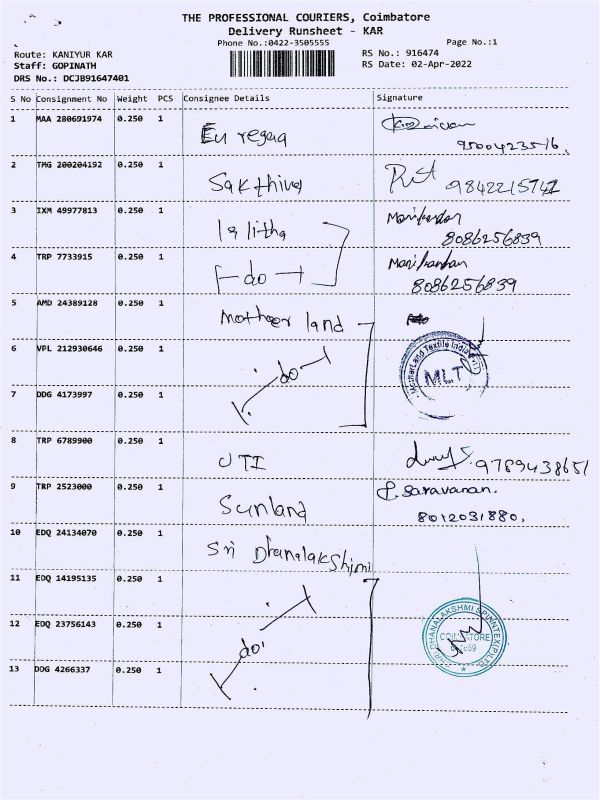 THE PROFESSIONAL COURIERS, Coimbatore
Delivery Runsheet - KAR
Phone No.:0422-3505555
Page No.:1
Route: KANIYUR KAR
Staff: GOPINATH
DRS No.: DCJB91647401
RS No.: 916474
RS Date: 02-Apr-2022
S No Consignment No Weight PCS Consignee Details Signature
1 MAA 280691974 0.250 1
9500423516,
2 TMG 200204192 0.250 1 Sakthivel 9842215741
3 IXM 49977813 0.250 1 lalitha Manikandan
8086256839
4 TRP 7733915 0.250 1 do Manikandan
8086256839
5 AMD 24389128 0.250 1 mother land
6 VPL 212930646 0.250 1 do
MotherLand Textile
MLT
7 DDG 4173997 0.250 1
8 TRP 6789900 0.250 1 UTI 9789438651
9 TRP 2523000 0.250 1 Sunland P. Saravanan.
8012031880,
10 EDQ 24134070 0.250 1 Sri Dhanalakshimi
11 EDQ 14195135 0.250 1
12 EDQ 23756143 0.250 1 do
SHRI DHANALAKSHMI SPINNTEX (P) LTD
COIMBATORE
13 DOG 4266337 0.250 1